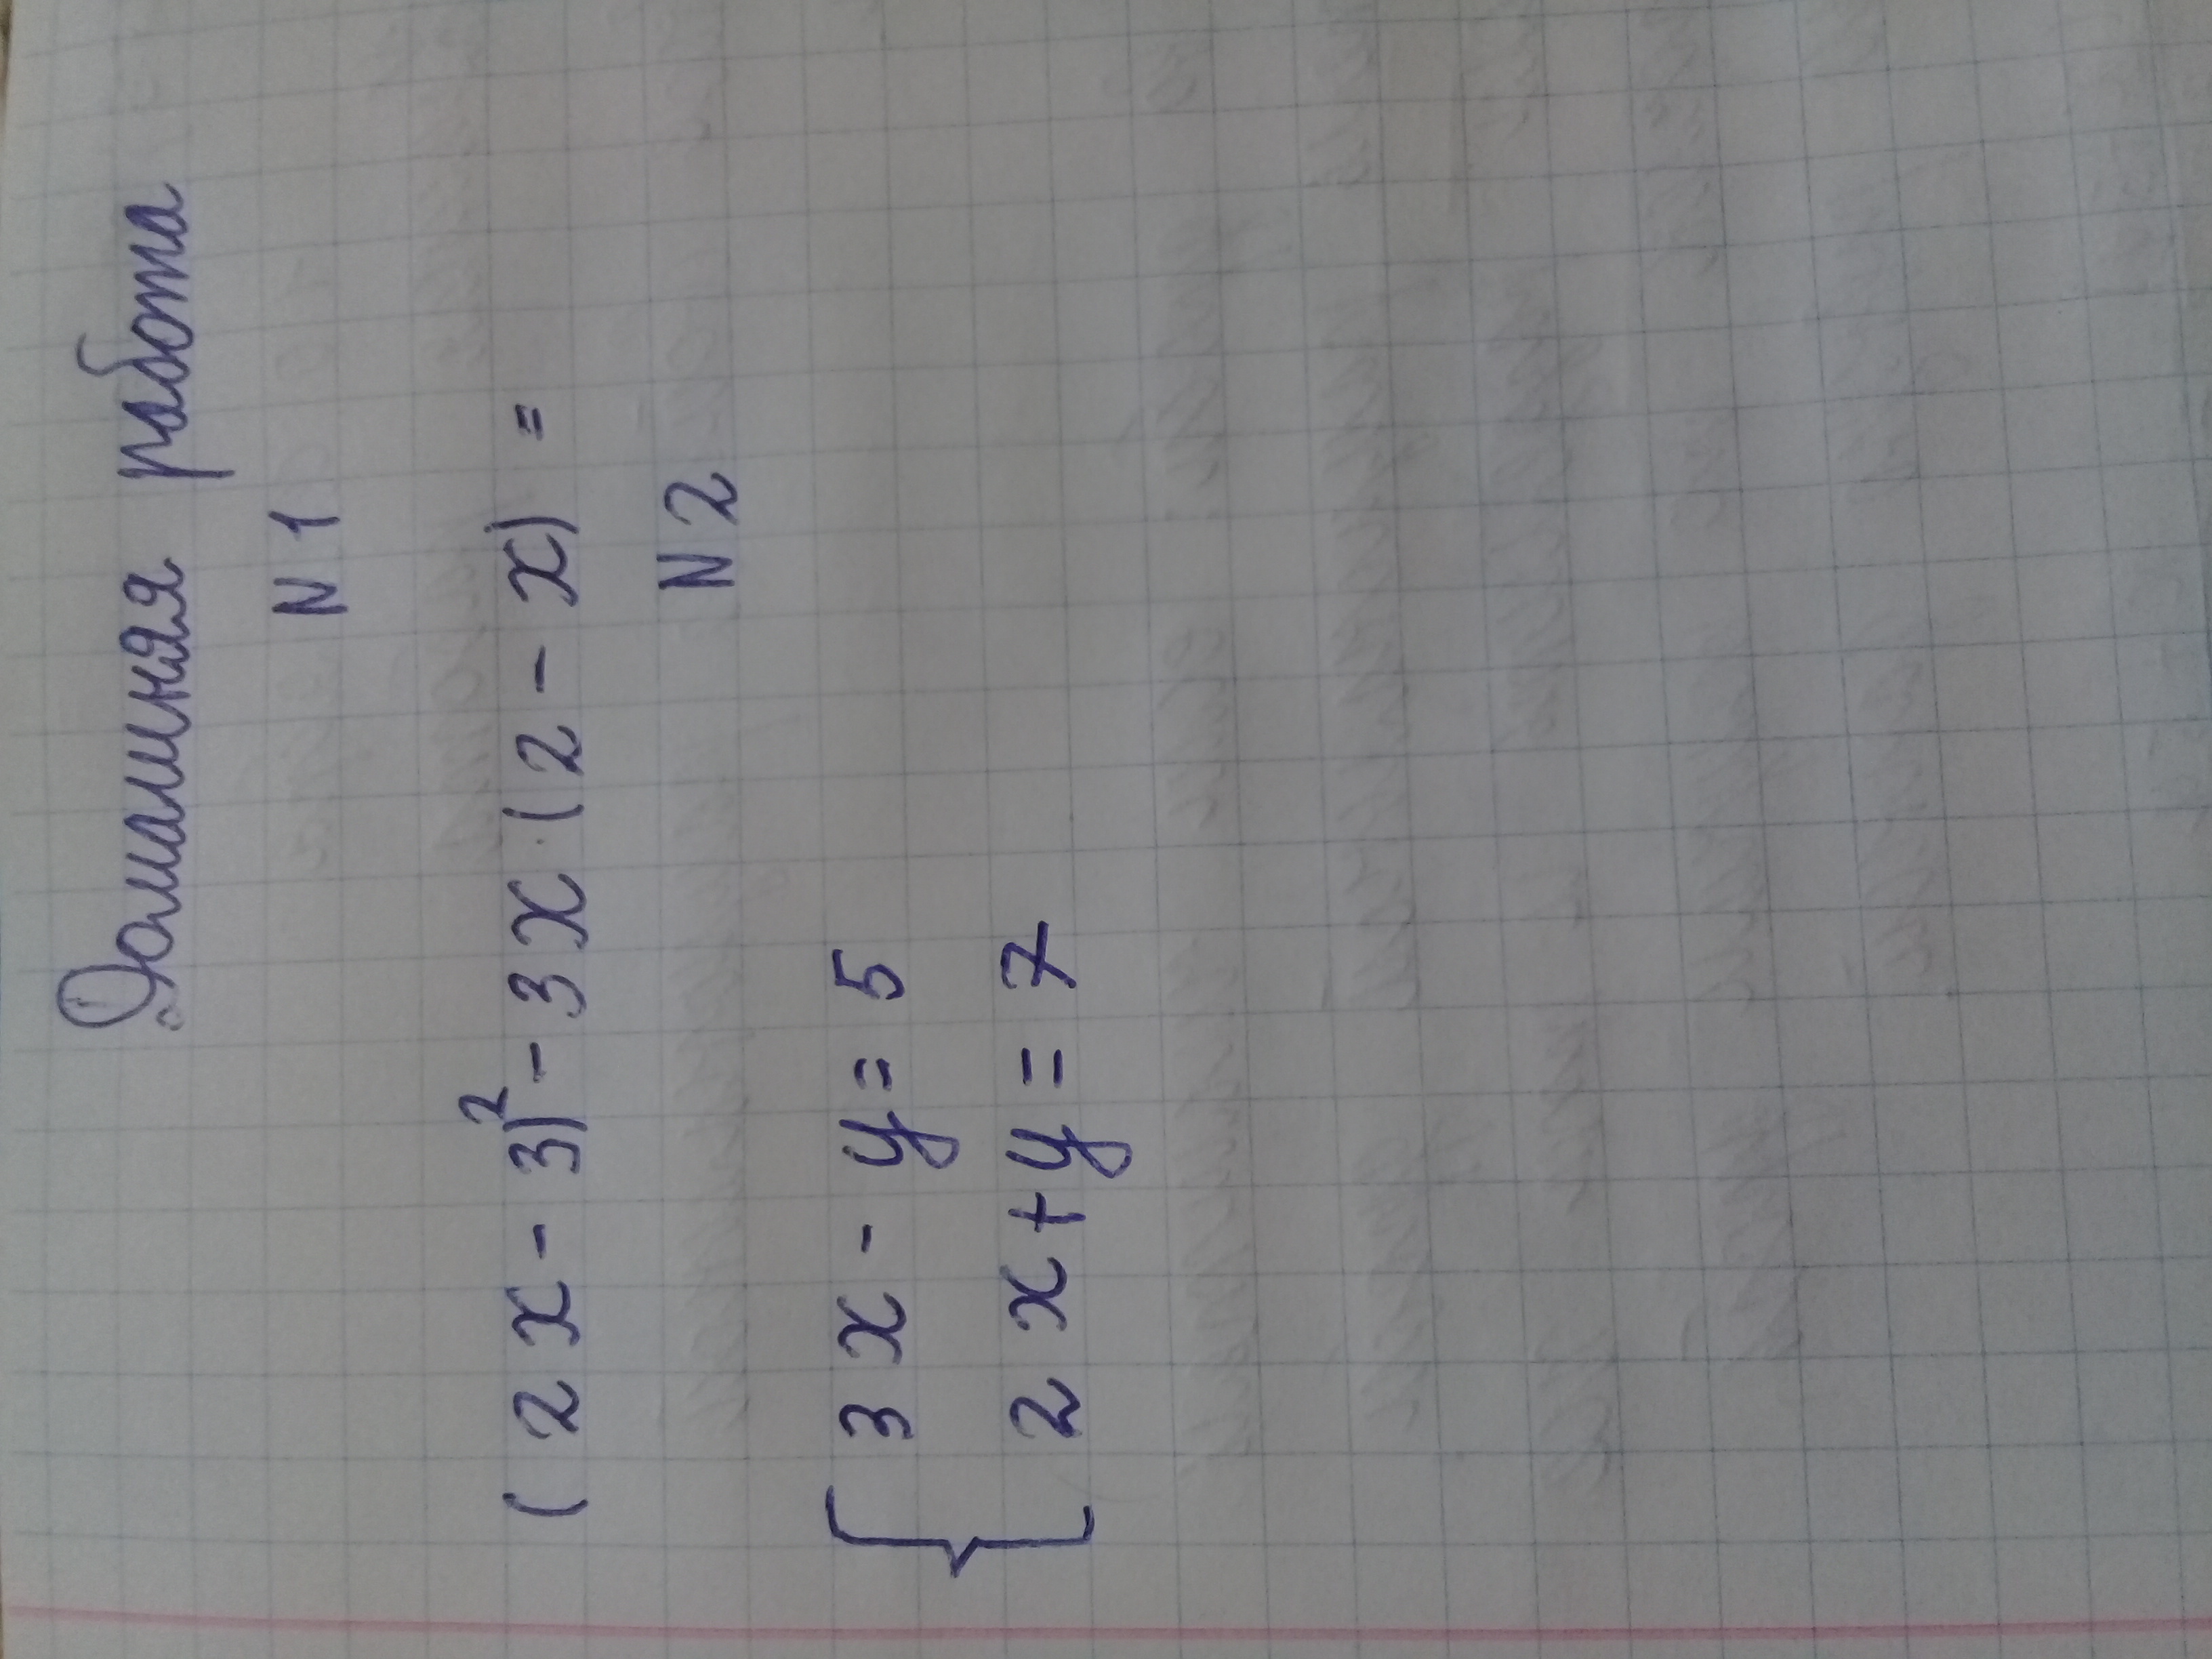 Домашняя работа
N 1
(2x - 3)² - 3x · (2 - x) =
N 2
{ 3x - y = 5
2x + y = 7